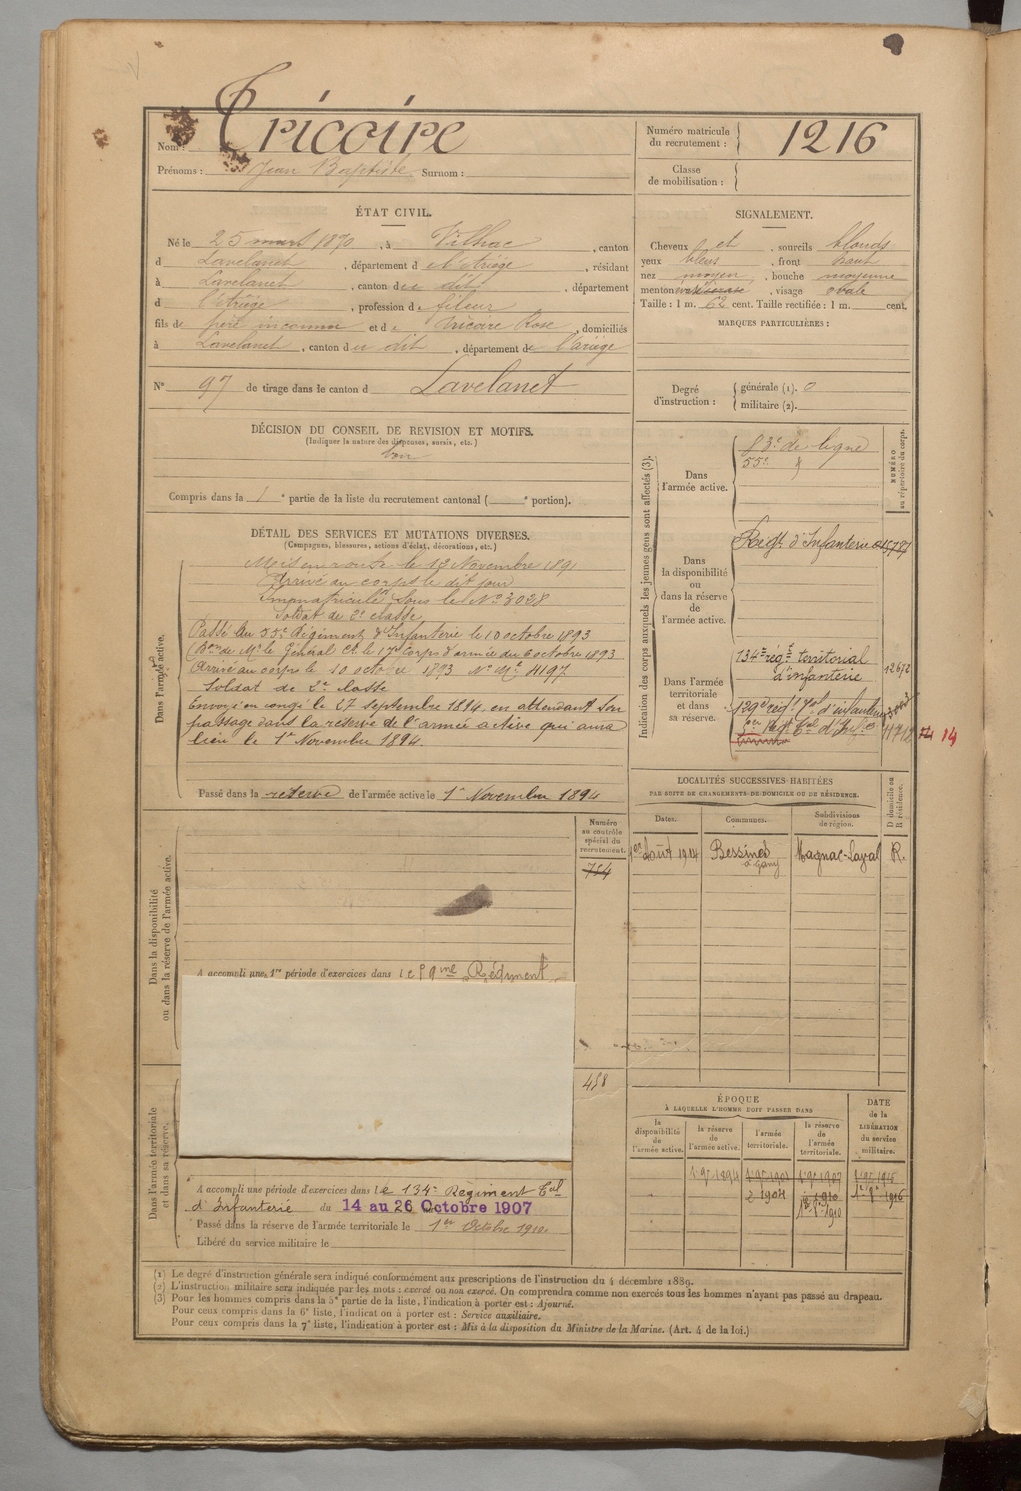 Nom : Tricoire
Prénoms : Jean Baptiste Surnom :
Numéro matricule du recrutement : 1216
Classe de mobilisation :
ÉTAT CIVIL.
Né le 25 mars 1870, à Vilhac, canton
d Lavelanet, département d e l'Ariège, résidant
à Lavelanet, canton d u dit, département
d l'Ariège, profession d e fileur
fils de père inconnu et d e Tricoire Rose, domiciliés
à Lavelanet, canton d u dit, département de l'Ariège
N° 97 de tirage dans le canton d Lavelanet
SIGNALEMENT.
Cheveux et, sourcils blonds
yeux bleus, front haut
nez moyen, bouche moyenne
menton, visage ovale
Taille : 1 m. 62 cent. Taille rectifiée : 1 m. cent.
MARQUES PARTICULIÈRES :
Degré d'instruction : générale (1). 0
militaire (2).
DÉCISION DU CONSEIL DE REVISION ET MOTIFS.
(Indiquer la nature des dispenses, sursis, etc.)
bon
Compris dans la 1e partie de la liste du recrutement cantonal ( e portion).
DÉTAIL DES SERVICES ET MUTATIONS DIVERSES.
(Campagnes, blessures, actions d'éclat, décorations, etc.)
Dans l'armée active.
Mis en route le 13 Novembre 1891
Arrivé au corps le dit jour
Immatriculé sous le N° 3028
Soldat de 2e classe
Passé au 55e Régiment d'Infanterie le 10 octobre 1893
(Don de Mr le Général Ct le 17e Corps d'armée du 6 octobre 1893
Arrivé au corps le 10 octobre 1893 N° Mle 4197
Soldat de 2e classe
Envoyé en congé le 27 septembre 1894 en attendant son
passage dans la réserve de l'armée active qui aura
lieu le 1er Novembre 1894.
Passé dans la réserve de l'armée active le 1er Novembre 1894
Indication des corps auxquels les jeunes gens sont affectés (3).
NUMÉRO au répertoire du corps.
Dans l'armée active.
83e de ligne
55e
Dans la disponibilité ou dans la réserve de l'armée active.
Régt d'Infanterie
Dans l'armée territoriale et dans sa réserve.
134e régt territorial 12612
d'infanterie
129e régt Tal d'infanterie
Régt Tal d'Inf 11712 14 14
LOCALITÉS SUCCESSIVES HABITÉES
PAR SUITE DE CHANGEMENTS DE DOMICILE OU DE RÉSIDENCE.
Dates. Communes. Subdivisions de région. D domicile ou R résidence.
1er Août 1914 Bessines Magnac-Laval R.
Numéro au contrôle spécial du recrutement.
754
Dans la disponibilité ou dans la réserve de l'armée active.
A accompli une 1re période d'exercices dans le 59me Régiment
458
Dans l'armée territoriale et dans sa réserve.
A accompli une période d'exercices dans le 134e Régiment Tal
d'Infanterie du 14 au 26 Octobre 1907
Passé dans la réserve de l'armée territoriale le 1er Octobre 1910
Libéré du service militaire le
ÉPOQUE
À LAQUELLE L'HOMME DOIT PASSER DANS
la disponibilité de l'armée active.
la réserve de l'armée active.
l'armée territoriale.
la réserve de l'armée territoriale.
DATE de la LIBÉRATION du service militaire.
1 9e 1894
(1) Le degré d'instruction générale sera indiqué conformément aux prescriptions de l'instruction du 4 décembre 1889.
(2) L'instruction militaire sera indiquée par les mots : exercé ou non exercé. On comprendra comme non exercés tous les hommes n'ayant pas passé au drapeau.
(3) Pour les hommes compris dans la 5e partie de la liste, l'indication à porter est : Ajourné.
Pour ceux compris dans la 6e liste, l'indication à porter est : Service auxiliaire.
Pour ceux compris dans la 7e liste, l'indication à porter est : Mis à la disposition du Ministre de la Marine. (Art. 4 de la loi.)